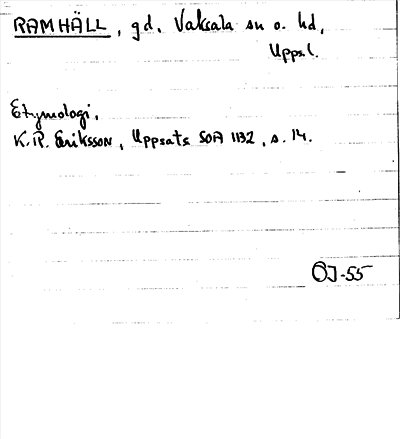 RAMHÄLL, gd. Vaksala sn o. hd,
Upps.l.
Etymologi.
K.R. Eriksson, Uppsats SOA 1132, s. 14.
ÖJ-55